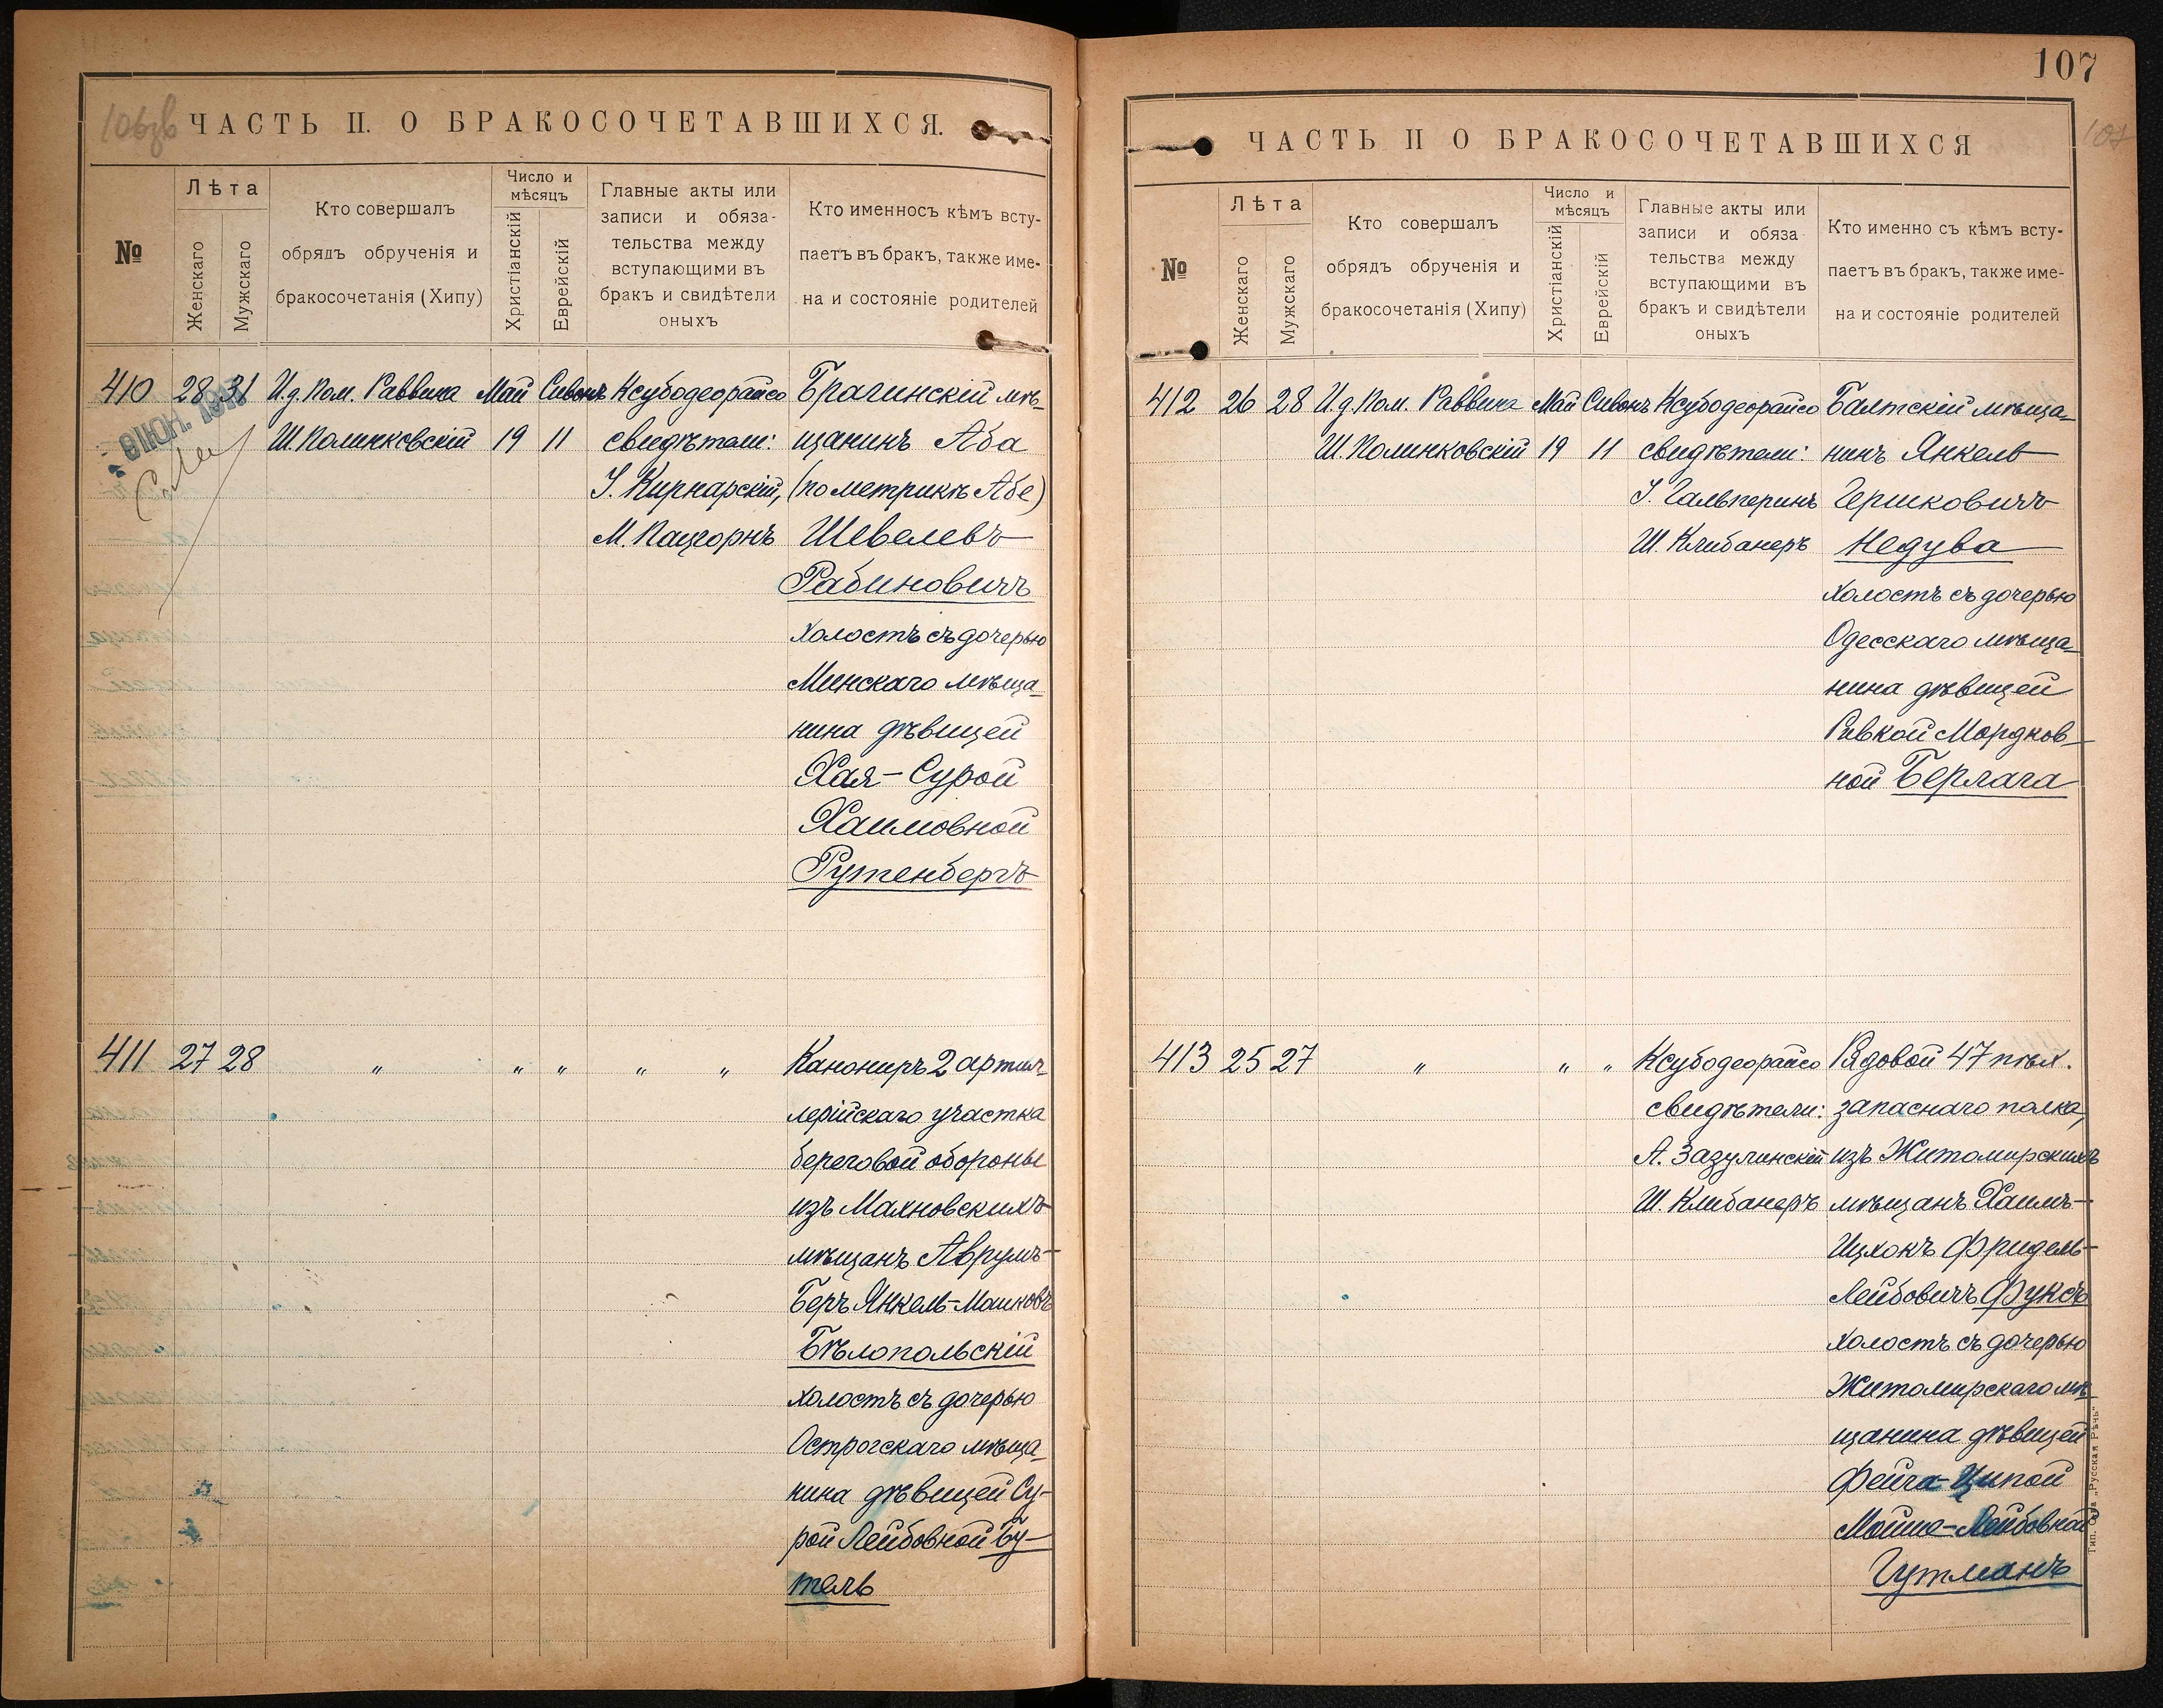 106зв
ЧАСТЬ II. О БРАКОСОЧЕТАВШИХСЯ.
№
Лѣта
Женскаго
Мужскаго
Кто совершалъ
обрядъ обрученія и
бракосочетанія (Хипу)
Число и
мѣсяцъ
Христіанскій
Еврейскій
Главные акты или
записи и обяза-
тельства между
вступающими въ
бракъ и свидѣтели
оныхъ
Кто именносъ кѣмъ всту-
паетъ въ бракъ, также име-
на и состояніе родителей
410 28 31 И.д. Пом. Раввина Май Сивонъ Ксубодеорайсо Брагинскій мѣ-
Ш. Полинковскій 19 11 свидѣтели: щанинъ Аба
I. Кирнарскій, (по метрикѣ Абе)
М. Пацгорнъ Шевелевъ
Рабиновичъ
холостъ съ дочерью
Минскаго мѣща-
нина дѣвицей
Хая-Сурой
Хаимовной
Рутенбергъ
411 27 28 " " " " " Канониръ 2 артил-
лерійскаго участка
береговой обороны
изъ Махновскихъ
мѣщанъ Аврумъ-
Беръ Янкель-Маиковъ
Бѣлопольскій
холостъ съ дочерью
Острогскаго мѣща-
нина дѣвицей Су-
рой Лейбовной Бу-
тель
107
107
ЧАСТЬ II О БРАКОСОЧЕТАВШИХСЯ
№
Лѣта
Женскаго
Мужскаго
Кто совершалъ
обрядъ обрученія и
бракосочетанія (Хипу)
Число и
мѣсяцъ
Христіанскій
Еврейскій
Главные акты или
записи и обяза
тельства между
вступающими въ
бракъ и свидѣтели
оныхъ
Кто именно съ кѣмъ всту-
паетъ въ бракъ, также име-
на и состояніе родителей
412 26 28 И.д. Пом. Раввина Май Сивонъ Ксубодеорайсо Балтскій мѣща-
Ш. Полинковскій 19 11 свидѣтели: нинъ Янкель
I. Гальперинъ Гершковичъ
Ш. Клибанеръ Недува
холостъ съ дочерью
Одесскаго мѣща-
нина дѣвицей
Ривкой Мордков-
ной Берлага
413 25 27 " " " Ксубодеорайсо Рядовой 47 пѣх.
свидѣтели: запаснаго полка,
А. Зазулинскій изъ Житомирскихъ
Ш. Клибанеръ мѣщанъ Хаимъ-
Ицхокъ Фридель-
Лейбовичъ Фуксъ
холостъ съ дочерью
Житомирскаго мѣ-
щанина дѣвицей
Фейга-Ципой
Мойше-Лейбовной
Гутманъ